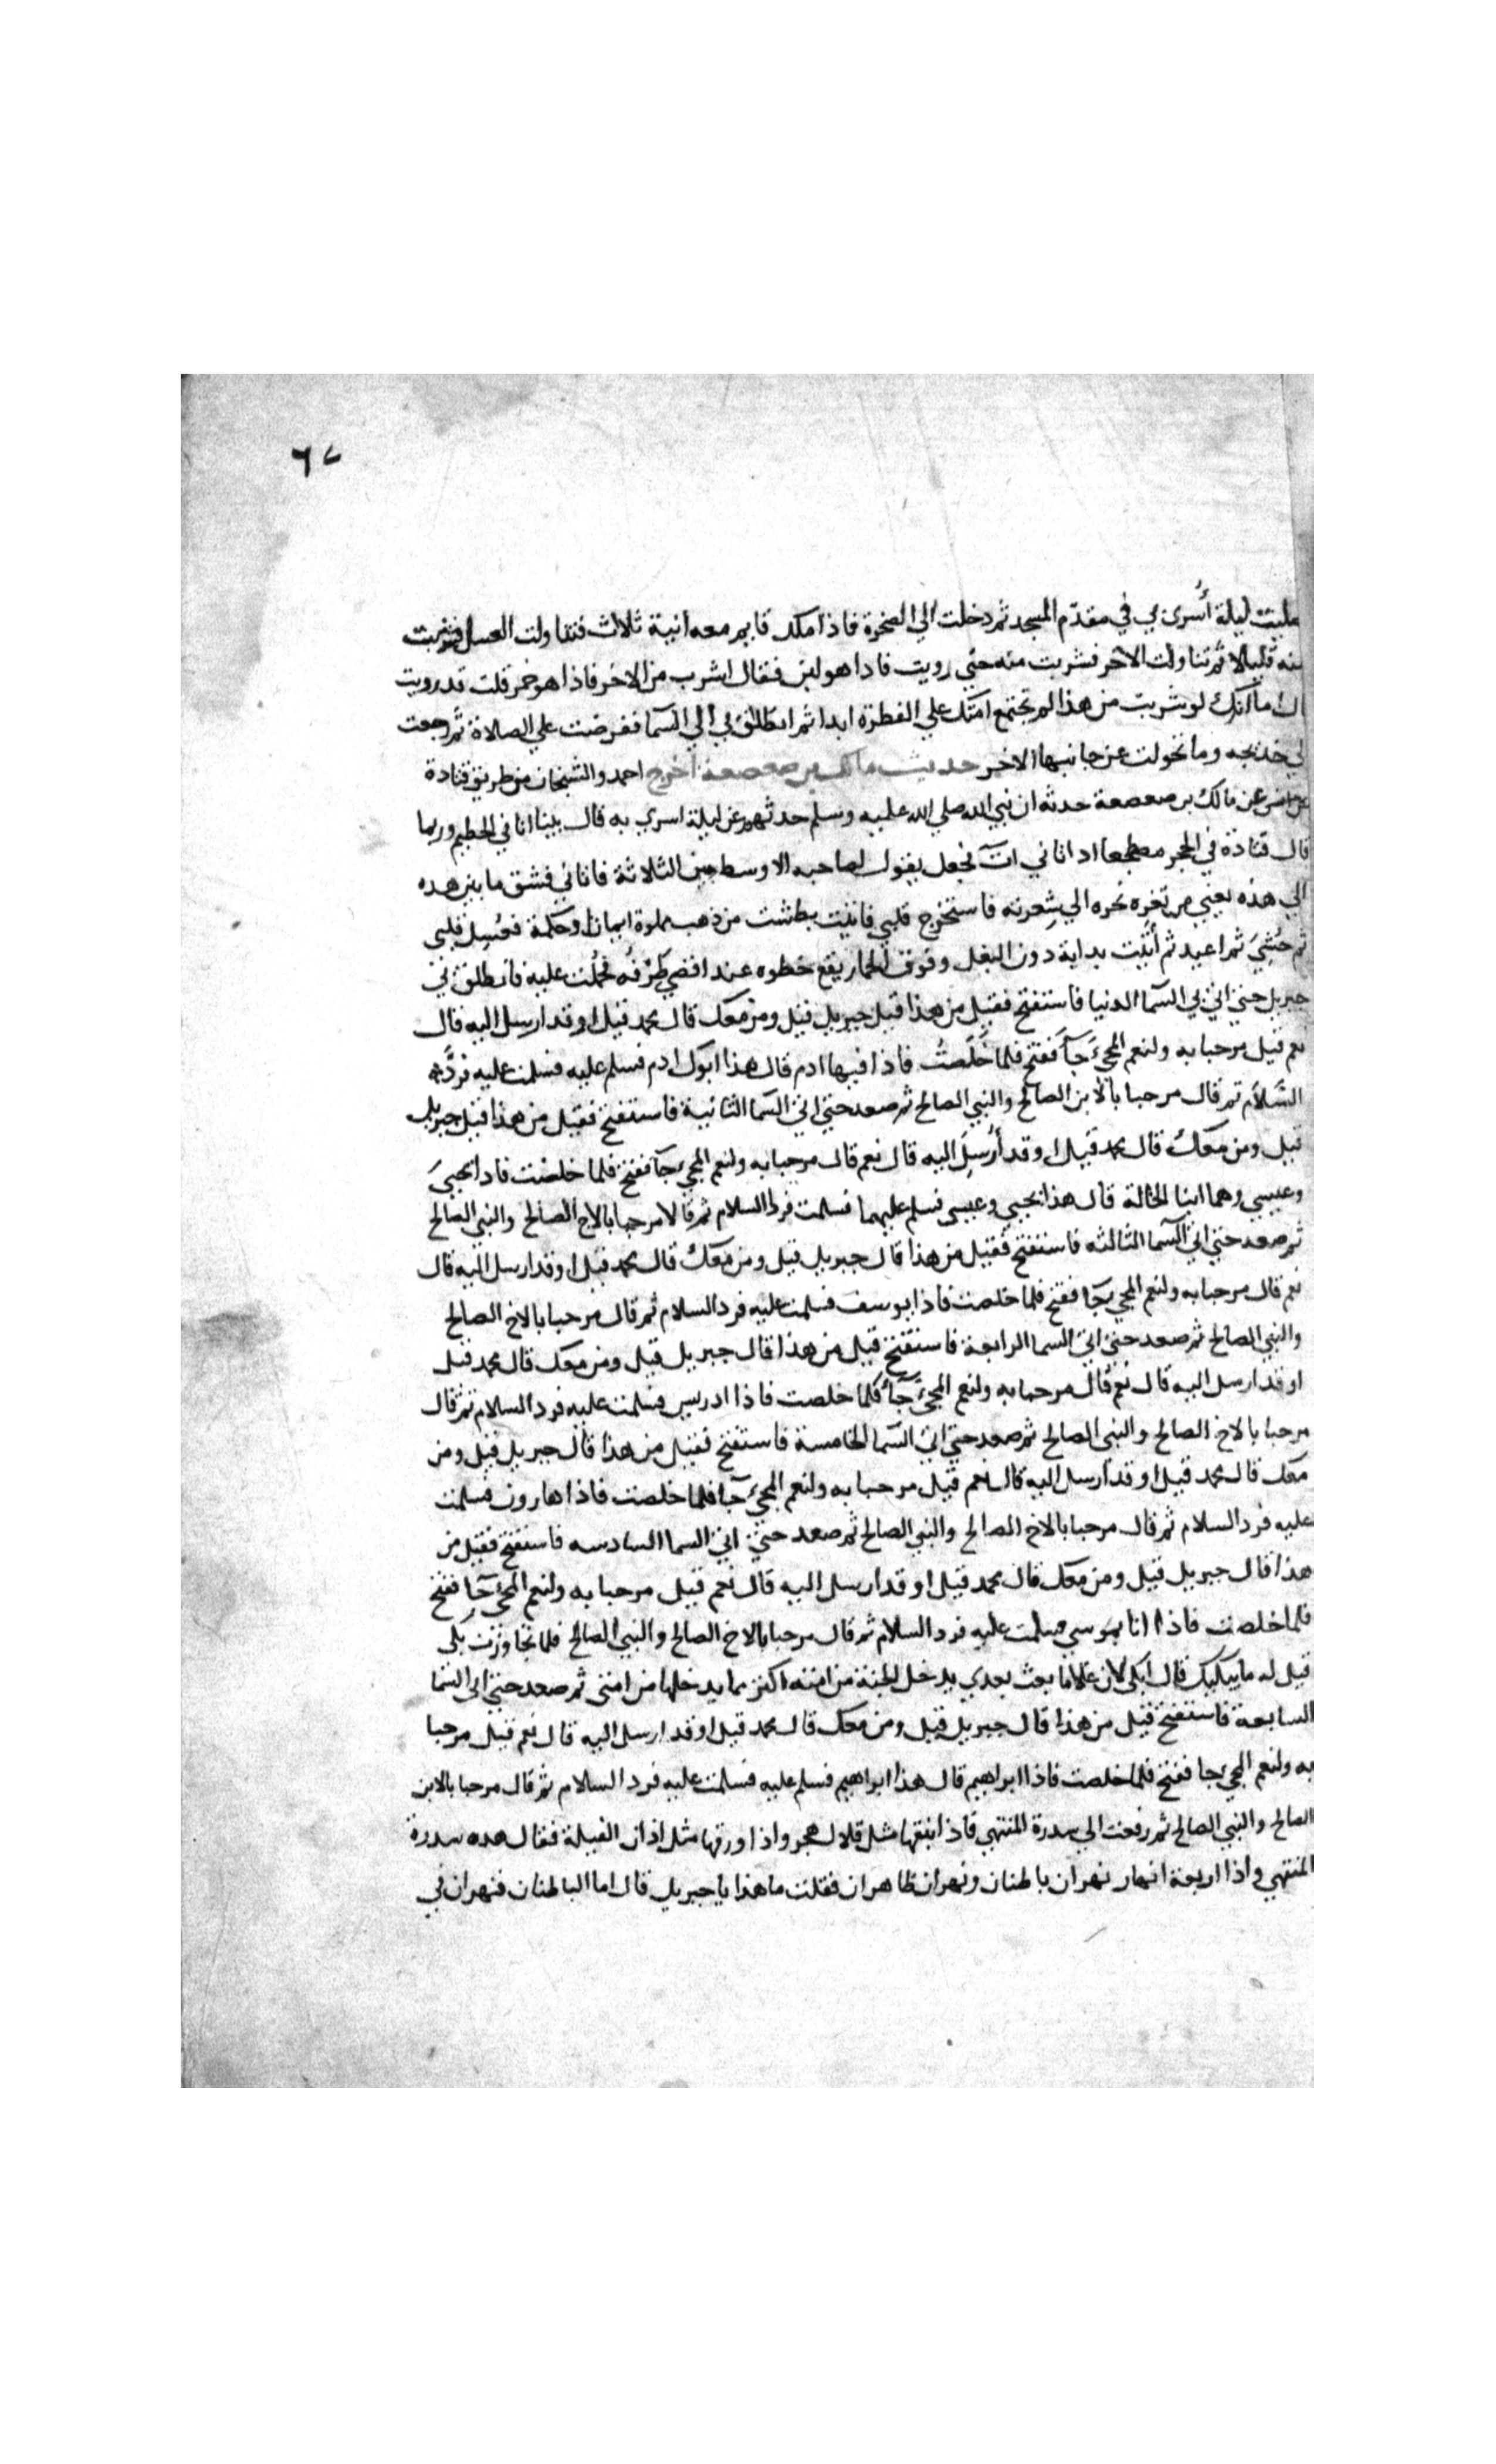 ٦٧
صليت ليلة أُسري بي في مقدّم المسجد ثم دخلت الي الصخرة فاذا ملك قايم معه انية ثلاث فتناولت العسل فشربت
منه قليلا ثم تناولت الاخر فشربت منه حتي رويت فاذا هو لبن فقال اشرب من الاخر فاذا هو خمر قلت قد رويت
قال اما انك لو شربت من هذا لم تجتمع امتك علي الفطرة ابدا ثم انطلق بي الي السما ففرضت علي الصلاة ثم رجعت
الي خديجه وما تحولت عن جانبها الاخر حديث مالك بن صعصعة اخرج احمد والشيخان من طريق قتادة
عن انس عن مالك بن صعصعة حدثه ان نبي الله صلي الله عليه وسلم حدثهم عن ليلة اسري به قال بينا انا في الحطيم وربما
قال قتادة في الحجر مضطجعا اذ اتاني اتٓ فجعل يقول لصاحبه الاوسط بين الثلاثة فاتاني فشق ما بين هذه
الي هذه يعني من ثغرة نحره الي شِعرته فاستخرج قلبي فاتيت بطشت من ذهب مملوة ايمانا وحكمة فغُسِل قلبي
ثم حُشِيَ ثم اعيد ثم أتيت بدابة دون البغل وفوق الحمار يقع خطوه عند اقصي طَرْفه فحُمِلْت عليه فانطلق بي
جبريل حتي اتي بي السما الدنيا فاستفتح فقيل من هذا قيل جبريل قيل ومن معك قال محمد قيل او قد ارسل اليه قال
نعم قيل مرحبا به ولنعم المجيءُ جآ ففتح فلما خَلَصْتُ فاذا فيها ادم قال هذا ابوك ادم فسلم عليه فسلمت عليه فردَّ
السَّلام ثم قال مرحبا بالابن الصالح والنبي الصالح ثم صعد حتي اتي السما الثانية فاستفتح فقيل من هذا قيل جبريل
قيل ومن معك قال محمد قيل او قد أُرسِلَ اليه قال نعم قال مرحبا به ولنعم المجيء جآ ففتح فلما خلصت فاذا يحييَ
وعيسي وهما ابنا الخالة قال هذا يحيي وعيسي فسلم عليهما فسلمت فردا السلام ثم قالا مرحبا بالاخ الصالح والنبي الصالح
ثم صعد حتي اتي السما الثالثه فاستفتح فقيل من هذا قال جبريل قيل ومن معك قال محمد قيل او قد ارسل اليه قال
نعم قال مرحبا به ولنعم المجي جآ ففتح فلما خلصت فاذا يوسف فسلمت عليه فرد السلام ثم قال مرحبا بالاخ الصالح
والنبي الصالح ثم صعد حتي اتي السما الرابعة فاستفتح قيل من هذا قال جبريل قيل ومن معك قال محمد قيل
او قد ارسل اليه قال نعم قال مرحبا به ولنعم المجيءُ جآء فلما خلصت فاذا ادريس فسلمت عليه فرد السلام ثم قال
مرحبا بالاخ الصالح والنبي الصالح ثم صعد حتي اتي السما الخامسة فاستفتح فقيل من هذا قال جبريل قيل ومن
معك قال محمد قيل او قد ارسل اليه قال نعم قيل مرحبا به ولنعم المجيء جآ فلما خلصت فاذا هارون فسلمت
عليه فرد السلام ثم قال مرحبا بالاخ الصالح والنبي الصالح ثم صعد حتي اتي السما السادسه فاستفتح فقيل من
هذا قال جبريل قيل ومن معك قال محمد قيل او قد ارسل اليه قال نعم قيل مرحبا به ولنعم المجيء جآ ففتح
فلما خلصت فاذا انا بموسي فسلمت عليه فرد السلام ثم قال مرحبا بالاخ الصالح والنبي الصالح فلما تجاوزت بكي
قيل له ما يبكيك قال ابكي لان غلاما بعث بعدي يدخل الجنة من امته اكثر مما يدخلها من امتي ثم صعد حتي اتي السما
السابعة فاستفتح قيل من هذا قال جبريل قيل ومن معك قال محمد قيل او قد ارسل اليه قال نعم قيل مرحبا
به ولنعم المجيء جا ففتح فلما خلصت فاذا ابراهيم قال هذا ابراهيم فسلم عليه فسلمت عليه فرد السلام ثم قال مرحبا بالابن
الصالح والنبي الصالح ثم رفعت الي سدرة المنتهي فاذا نبقها مثل قلال هجر واذا ورقها مثل اذان الفيلة فقال هذه سدرة
المنتهي واذا اربعة انهار نهران باطنان ونهران ظاهران فقلت ما هذا يا جبريل قال اما الباطنان فنهران في